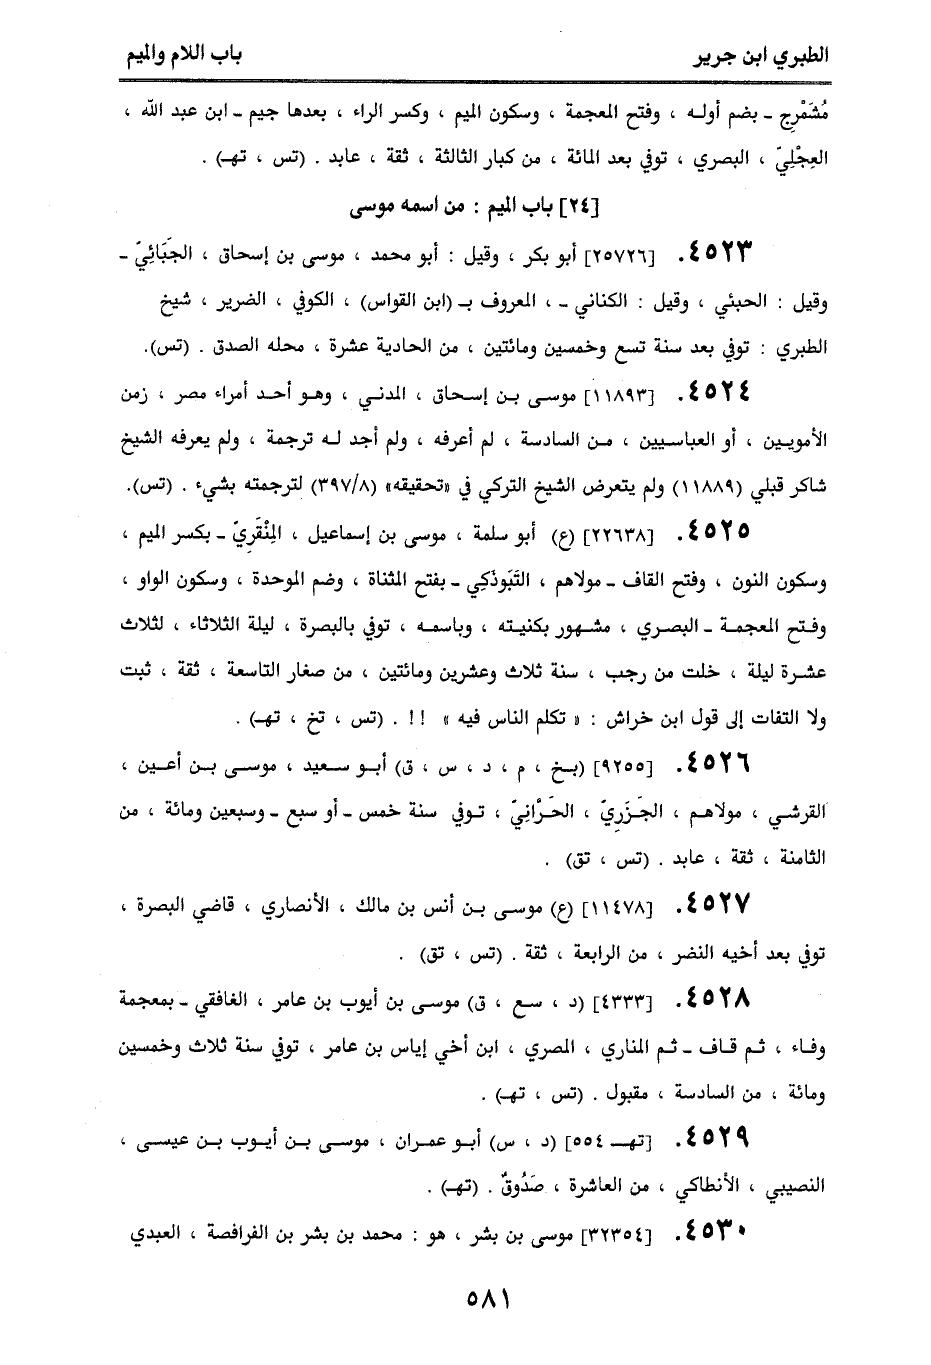 الطبري ابن جرير
باب اللام والميم
مُشَمْرِج ـ بضم أوله ، وفتح المعجمة ، وسكون الميم ، وكسر الراء ، بعدها جيم ـ ابن عبد الله ،
العِجْلِيّ ، البصري ، توفي بعد المائة ، من كبار الثالثة ، ثقة ، عابد . (تس ، تهـ) .
[٢٤] باب الميم : من اسمه موسى
٤٥٢٣. [٢٥٧٢٦] أبو بكر ، وقيل : أبو محمد ، موسى بن إسحاق ، الجَبَائِيّ ـ
وقيل : الحبئي ، وقيل : الكناني ـ ، المعروف بـ (ابن القواس) ، الكوفي ، الضرير ، شيخ
الطبري : توفي بعد سنة تسع وخمسين ومائتين ، من الحادية عشرة ، محله الصدق . (تس).
٤٥٢٤. [١١٨٩٣] موسى بن إسحاق ، المدني ، وهو أحد أمراء مصر ، زمن
الأمويين ، أو العباسيين ، من السادسة ، لم أعرفه ، ولم أجد له ترجمة ، ولم يعرفه الشيخ
شاكر قبلي (١١٨٨٩) ولم يتعرض الشيخ التركي في «تحقيقه» (٣٩٧/٨) لترجمته بشيء . (تس).
٤٥٢٥. [٢٢٦٣٨] (ع) أبو سلمة ، موسى بن إسماعيل ، المِنْقَرِيّ ـ بكسر الميم ،
وسكون النون ، وفتح القاف ـ مولاهم ، التَّبُوذَكِي ـ بفتح المثناة ، وضم الموحدة ، وسكون الواو ،
وفتح المعجمة ـ البصري ، مشهور بكنيته ، وباسمه ، توفي بالبصرة ، ليلة الثلاثاء ، لثلاث
عشرة ليلة ، خلت من رجب ، سنة ثلاث وعشرين ومائتين ، من صغار التاسعة ، ثقة ، ثبت
ولا التفات إلى قول ابن خراش : « تكلم الناس فيه » !! . (تس ، تخ ، تهـ) .
٤٥٢٦. [٩٢٥٥] (بخ ، م ، د ، س ، ق) أبو سعيد ، موسى بن أعين ،
القرشي ، مولاهم ، الجَزَرِيّ ، الحَرَّانِيّ ، توفي سنة خمس ـ أو سبع ـ وسبعين ومائة ، من
الثامنة ، ثقة ، عابد . (تس ، تق) .
٤٥٢٧. [١١٤٧٨] (ع) موسى بن أنس بن مالك ، الأنصاري ، قاضي البصرة ،
توفي بعد أخيه النضر ، من الرابعة ، ثقة . (تس ، تق) .
٤٥٢٨. [٤٣٣٣] (د ، سع ، ق) موسى بن أيوب بن عامر ، الغافقي ـ بمعجمة
وفاء ، ثم قاف ـ ثم المناري ، المصري ، ابن أخي إياس بن عامر ، توفي سنة ثلاث وخمسين
ومائة ، من السادسة ، مقبول . (تس ، تهـ) .
٤٥٢٩. [تهـ ٥٥٤] (د ، س) أبو عمران ، موسى بن أيوب بن عيسى ،
النصيبي ، الأنطاكي ، من العاشرة ، صَدُوقٌ . (تهـ) .
٤٥٣٠. [٣٢٣٥٤] موسى بن بشر ، هو : محمد بن بشر بن الفرافصة ، العبدي
٥٨١